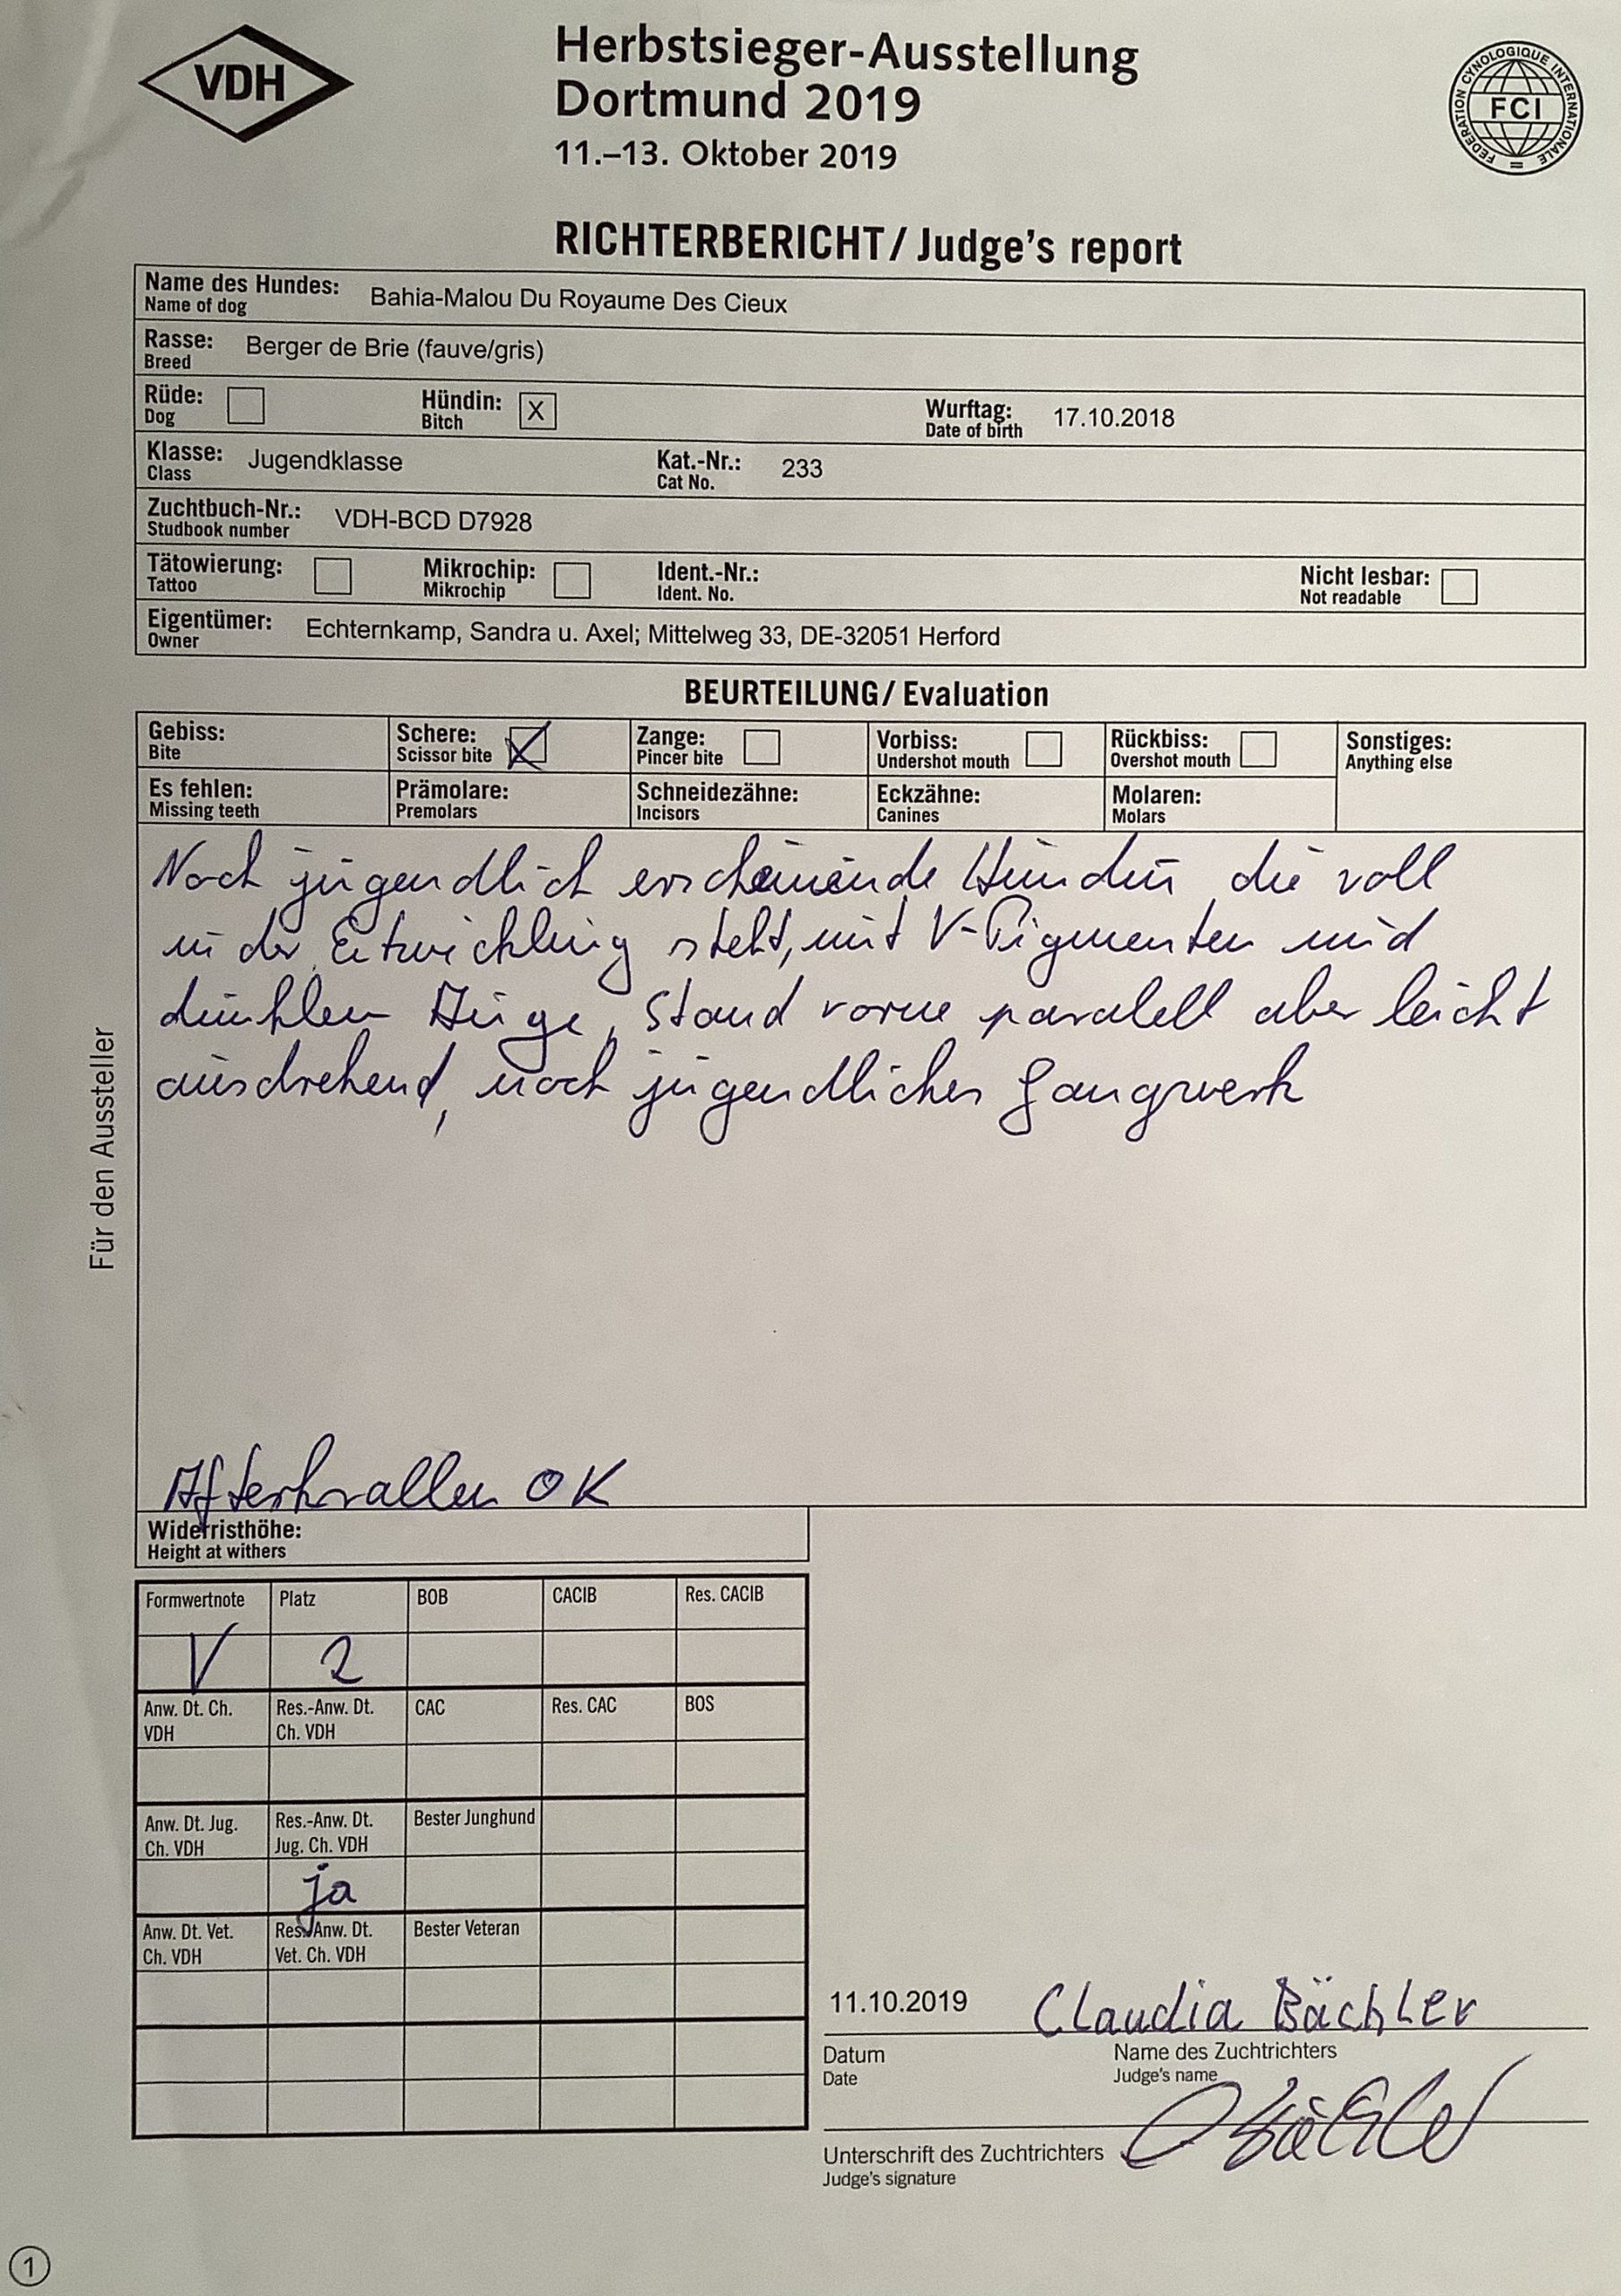 VDH
Herbstsieger-Ausstellung
Dortmund 2019
11.–13. Oktober 2019
FEDERATION CYNOLOGIQUE INTERNATIONALE
FCI
RICHTERBERICHT/ Judge's report
Name des Hundes: Bahia-Malou Du Royaume Des Cieux
Name of dog
Rasse: Berger de Brie (fauve/gris)
Breed
Rüde: Hündin: X Wurftag: 17.10.2018
Dog Bitch Date of birth
Klasse: Jugendklasse Kat.-Nr.: 233
Class Cat No.
Zuchtbuch-Nr.: VDH-BCD D7928
Studbook number
Tätowierung: Mikrochip: Ident.-Nr.: Nicht lesbar:
Tattoo Mikrochip Ident. No. Not readable
Eigentümer: Echternkamp, Sandra u. Axel; Mittelweg 33, DE-32051 Herford
Owner
BEURTEILUNG/ Evaluation
Gebiss: Schere: X Zange: Vorbiss: Rückbiss: Sonstiges:
Bite Scissor bite Pincer bite Undershot mouth Overshot mouth Anything else
Es fehlen: Prämolare: Schneidezähne: Eckzähne: Molaren:
Missing teeth Premolars Incisors Canines Molars
Noch jugendlich erscheinende Hündin die voll
in der Entwicklung steht, mit V-Pigmenten und
dunklen Auge, Stand vorne paralell aber leicht
ausdrehend, noch jugendliches Gangwerk
Afterkrallen OK
Für den Aussteller
Widerristhöhe:
Height at withers
Formwertnote Platz BOB CACIB Res. CACIB
V 2
Anw. Dt. Ch. Res.-Anw. Dt. CAC Res. CAC BOS
VDH Ch. VDH
Anw. Dt. Jug. Res.-Anw. Dt. Bester Junghund
Ch. VDH Jug. Ch. VDH
ja
Anw. Dt. Vet. Res.-Anw. Dt. Bester Veteran
Ch. VDH Vet. Ch. VDH
11.10.2019 Claudia Bächler
Datum Name des Zuchtrichters
Date Judge's name
Unterschrift des Zuchtrichters
Judge's signature
1